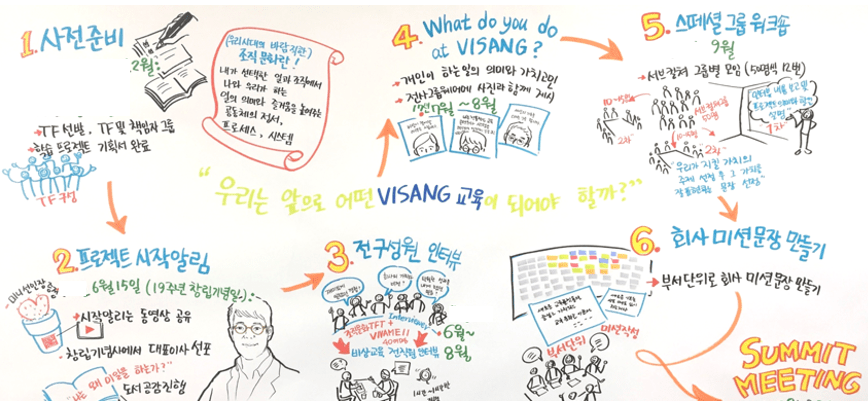 1. 사전준비
2월:
→TF선발, TF및 책임자 그룹
→학습 프로젝트 기획서 완료
TF구성
(우리시대의 바람직한)
조직 문화란!
내가 선택한 일과 조직에서
나와 우리가 하는
일의 의미와 즐거움을 높여주는
공동체의 정서,
프로세스, 시스템
4. What do you do
at VISANG?
→개인이 하는일의 의미와 가치고민
→전사그룹웨어에 사진과 함께 게시
7월~8월
5. 스페셜 그룹 워크숍
9월
→서브컬쳐 그룹별 모임 (50명씩 12번)
10~15명
2차
10~15명
2차
1차
"우리가 지킬 가치의
주제 선정 후 그 가치를
잘 표현하는 문장 선정"
"우리는 앞으로 어떤 VISANG 교육이 되어야 할까?"
2. 프로젝트 시작알림
6월15일 (19주년 창립기념일):
미니선인장 증정
→시작알리는 동영상 공유
→창립기념사에서 대표이사 선포
"나는 왜 이일을 하는가?"
도서공감진행
3. 전구성원 인터뷰
Interviewer
조직문화TFT +
40여명
6월~
8월
비상교육 전직원 인터뷰
6. 회사 미션문장 만들기
→부서단위로 회사 미션문장 만들기
부서단위
미션작성
SUMMIT
MEETING